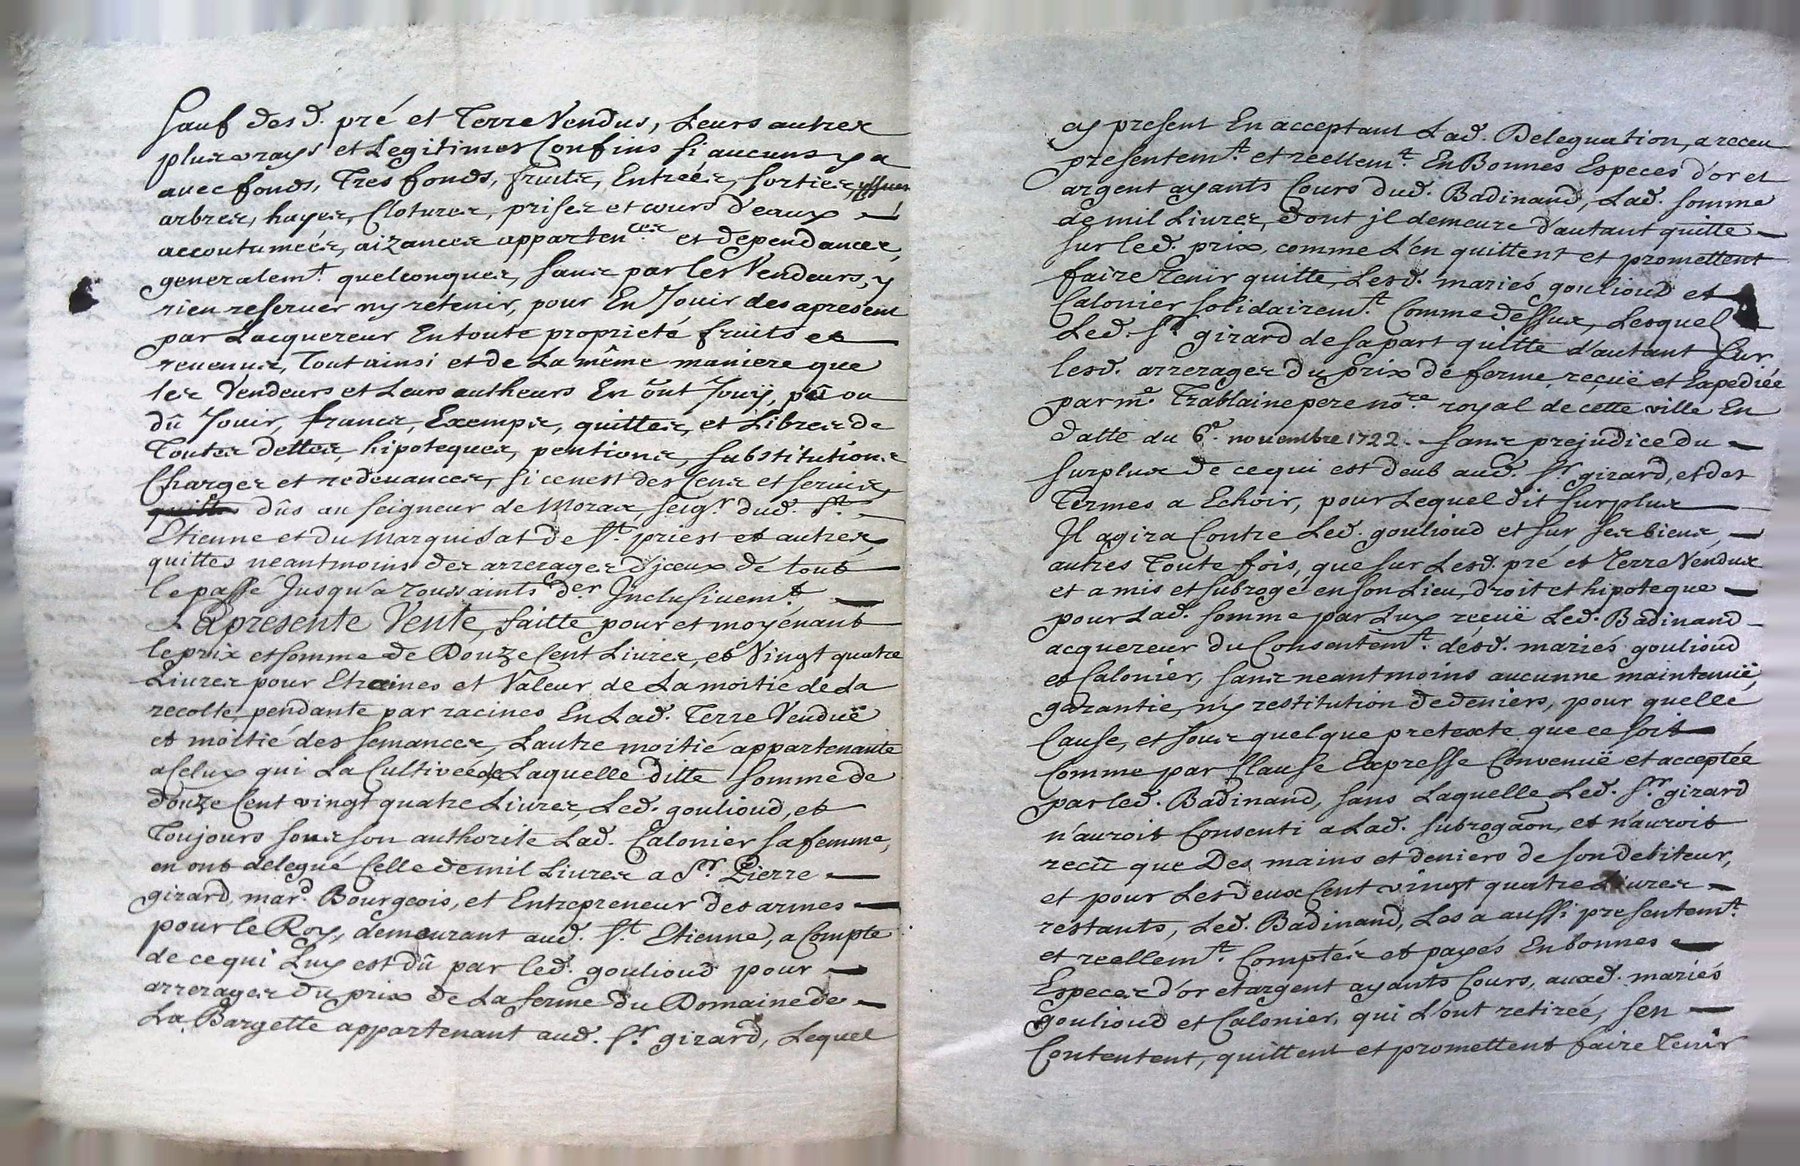 Sauf desd. pré et Terre Vendus, Leurs autres
plus vrays et Legitimes Confins si aucuns y a
avec fonds, Tres fonds, fruits, Entrées, sorties, yssues
arbres, hayes, Clotures, prises et cours d'eaux
accoutumées, aizances apparten.ces et dependances,
generalem.t quelconques, sans par les Vendeurs, y
rien reserver ny retenir, pour En Jouir des apresent
par Lacquereur En toute proprieté fruits et
revenus, Tout ainsi et de La même maniere que
les Vendeurs et Leurs autheurs En ont Jouy, pû ou
dû Jouir, francs, Exempts, quittes, et Libres de
Toutes dettes, hipoteques, pentions, substitutions
Charges et redevances, si ce nest des Cens et servis
dûs au seigneur de Moras seig.r dud. S.t
Etienne et du Marquisat de S.t priest et autres,
quittes neantmoins des arrerages d'jceux de tout
le passé Jusqu'a Toussaints d.er Inclusivem.t
La presente Vente, faitte pour et moyénant
le prix et somme de Douze Cent Livres, et Vingt quatre
Livres pour Etraines et Valeur de La moitié de La
recolte pendante par racines En Lad. Terre Venduë
et moitié des semances, Lautre moitié appartenante
a Celuy qui La Cultivée, de Laquelle ditte somme de
douze Cent vingt quatre Livres, Led. goulioud, et
Toujours sous son authorite Lad. Calonier sa femme,
en ont delegué Celle de mil Livres a S.r Pierre
girard, mar.d Bourgeois, et Entrepreneur des armes
pour le Roy, demeurant aud. S.t Etienne, a Compte
de ce qui Luy est dû par led. goulioud pour
arrerages du prix de La ferme du Domaine de
La Bargette appartenant aud. S.r girard, Lequel
cy present En acceptant Lad. Deleguation, a receu
presentem.t et réellem.t En Bonnes Especes d'or et
argent ayants Cours dud. Badinand, Lad. somme
de mil Livres, dont jl demeure d'autant quitte
sur led. prix, comme L'en quittent et promettent
faire Tenir quitte, Lesd. mariés goulioud et
Calonier solidairem.t Comme dessus, Lesquels
Led. S.r girard de sa part quitte d'autant sur
lesd. arrerages du prix de ferme, reçuë et Expediée
par m.e Trablaine pere no.re royal de cette ville En
datte du 6.e novembre 1722. sans prejudice du
surplus de ce qui est deub aud. S.r girard, et des
Termes a Echoir, pour Lequel dit surplus
Il agira Contre Led. goulioud et sur ses biens,
autres Toute fois, que sur Lesd. pré et Terre Vendus
et a mis et subrogé en son Lieu, droit et hipoteque
pour Lad. somme par Luy reçuë Led. Badinand
acquereur du Consentem.t désd. mariés goulioud
et Calonier, sans neantmoins aucunne maintenuë,
garantie, ny restitution de deniers, pour quelle
Cause, et sous quelque pretexte que ce soit
Comme par Clause Expresse Convenuë et acceptée
par led. Badinand, sans Laquelle Led. S.r girard
n'auroit Consenti a Lad. subrogaon, et n'auroit
reçû que Des mains et deniers de son debiteur,
et pour Les deux Cent vingt quatre Livres
restants, Led. Badinand, Les a aussi presentem.t
et reellem.t Comptés et payés En bonnes
Especes d'or et argent ayants Cours, auxd. mariés
goulioud et Calonier, qui L'ont retirée, s'en
Contentent, quittent et promettent faire Tenir